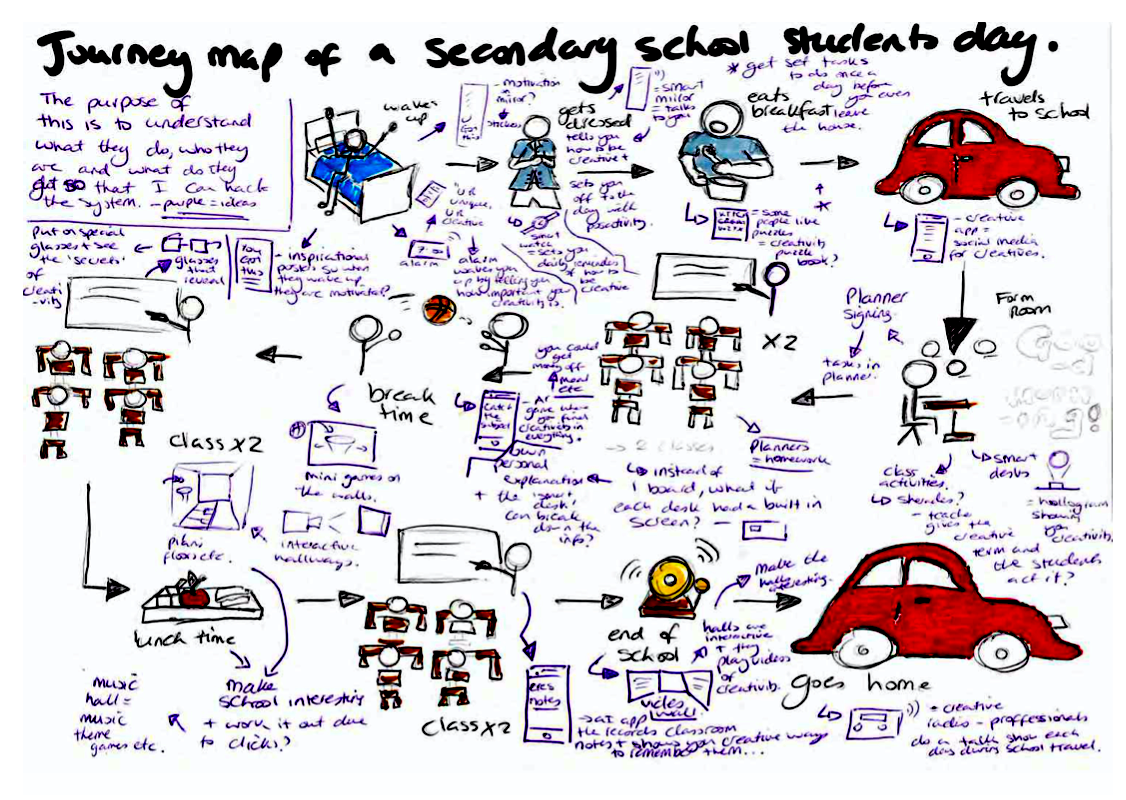 Journey map of a secondary school students day.
The purpose of
this is to understand
what they do, who they
are and what do they
got so that I can hack
the system. - purple = ideas
wakes
up
- motivation
in
mirror?
stickers
U
Got
this
gets
dressed
= smart
mirror
= talks
to you
tells you
how to be
creative +
sets
you
off to the
day with
positivity.
smart
watch
= sets you
daily reminders
of how to
be
creative
eats
breakfast
* get set tasks
to do once a
day before
you even
leave
the house.
*
= some
people like
puzzles
= creativity
puzzle
book?
travels
to school
- creative
app =
social media
for creatives.
put on special
glasses + see
the 'secrets'
of
creati
-vity
glasses
that
reveal
You
Got
this
- inspirational
posters so when
they wake up
they are motivated?
'UR
unique,
UR
creative
7:00
alarm
alarm
wakes you
up by telling you
how important you
creativity is.
Form
Room
Planner
Signing
tasks in
planner.
class
activities.
sherades?
- teacher
gives the
creative
term and
the students
act it?
smart
desks
= hollogram
showing
you
creativity.
X2
→ 2 classes
Planners
= homework
instead of
1 board, what if
each desk had a built in
screen? -
own
personal
explanation
+ the 'smart
desk'
can break
down the
info?
break
time
you could
get
money off
meal
etc
- AR
game where
you find
creativity in
everything.
catch
the
mini games on
the walls.
interactive
hallways.
class X2
floors etc.
lunch time
make
school interesting
+ work it out due
to clicks?
music
hall =
music
theme
games etc.
class X2
notes
→ at app
the records classroom
notes + shows you creative ways
to remember them...
end of
school
make the
halls interesting.
halls are
interactive
+ they
play videos
of
creativity.
video
wall.
goes home
= creative
radio - proffessionals
do a talk show each
day during school travel.